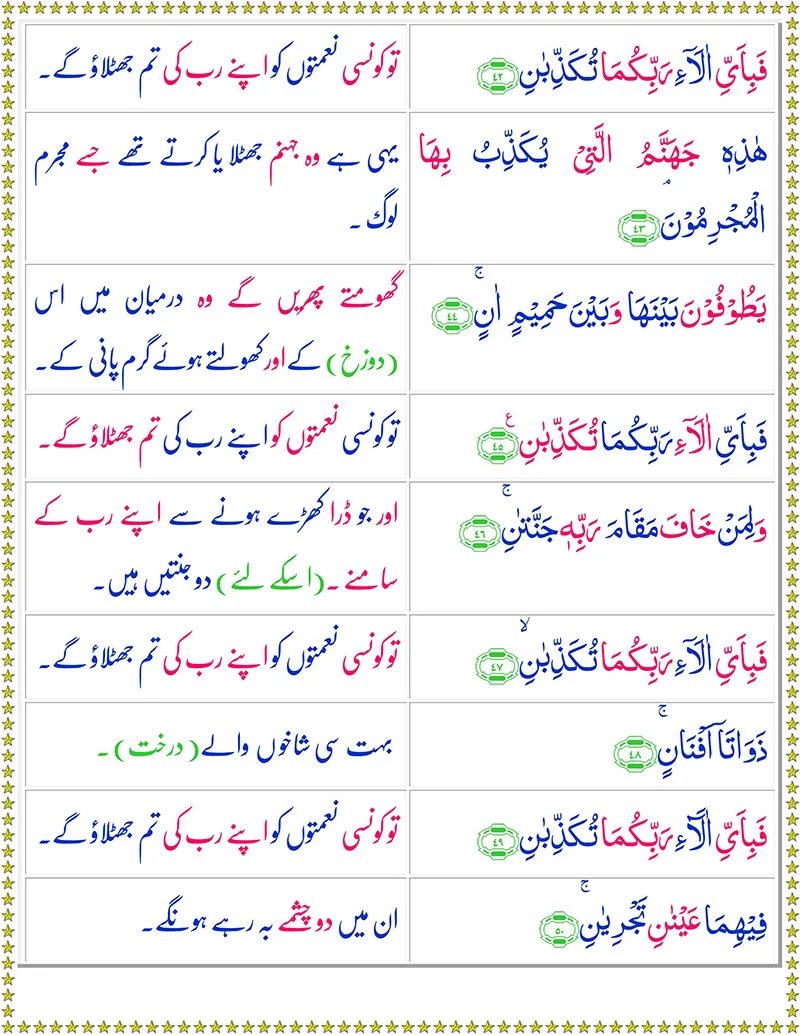 فَبِاَىِّ اٰلَآءِ رَبِّكُمَا تُكَذِّبٰنِ ﴿۴۲﴾
توکونسی نعمتوں کو اپنے رب کی تم جھٹلاؤ گے۔
هٰذِهٖ جَهَنَّمُ الَّتِىْ يُكَذِّبُ بِهَا
الْمُجْرِمُوْنَ‌ۘ ﴿۴۳﴾
یہی ہے وہ جہنم جھٹلا یا کرتے تھے جسے مجرم
لوگ ۔
يَطُوْفُوْنَ بَيْنَهَا وَبَيْنَ حَمِيْمٍ اٰنٍ‌ۚ ﴿۴۴﴾
گھومتے پھریں گے وہ درمیان میں اس
(دوزخ) کے اور کھولتے ہوئے گرم پانی کے۔
فَبِاَىِّ اٰلَآءِ رَبِّكُمَا تُكَذِّبٰنِ ع ﴿۴۵﴾
توکونسی نعمتوں کو اپنے رب کی تم جھٹلاؤ گے۔
وَلِمَنْ خَافَ مَقَامَ رَبِّهٖ جَنَّتٰنِ‌ۚ ﴿۴۶﴾
اور جو ڈرا کھڑے ہونے سے اپنے رب کے
سامنے ۔ (اسکے لئے) دو جنتیں ہیں۔
فَبِاَىِّ اٰلَآءِ رَبِّكُمَا تُكَذِّبٰنِۙ ﴿۴۷﴾
توکونسی نعمتوں کو اپنے رب کی تم جھٹلاؤ گے۔
ذَوَاتَاۤ اَفْنَانٍ‌ۚ ﴿۴۸﴾
بہت سی شاخوں والے (درخت) ۔
فَبِاَىِّ اٰلَآءِ رَبِّكُمَا تُكَذِّبٰنِ ﴿۴۹﴾
توکونسی نعمتوں کو اپنے رب کی تم جھٹلاؤ گے۔
فِيْهِمَا عَيْنٰنِ تَجْرِيٰنِ‌ۚ ﴿۵۰﴾
ان میں دو چشمے بہ رہے ہونگے۔